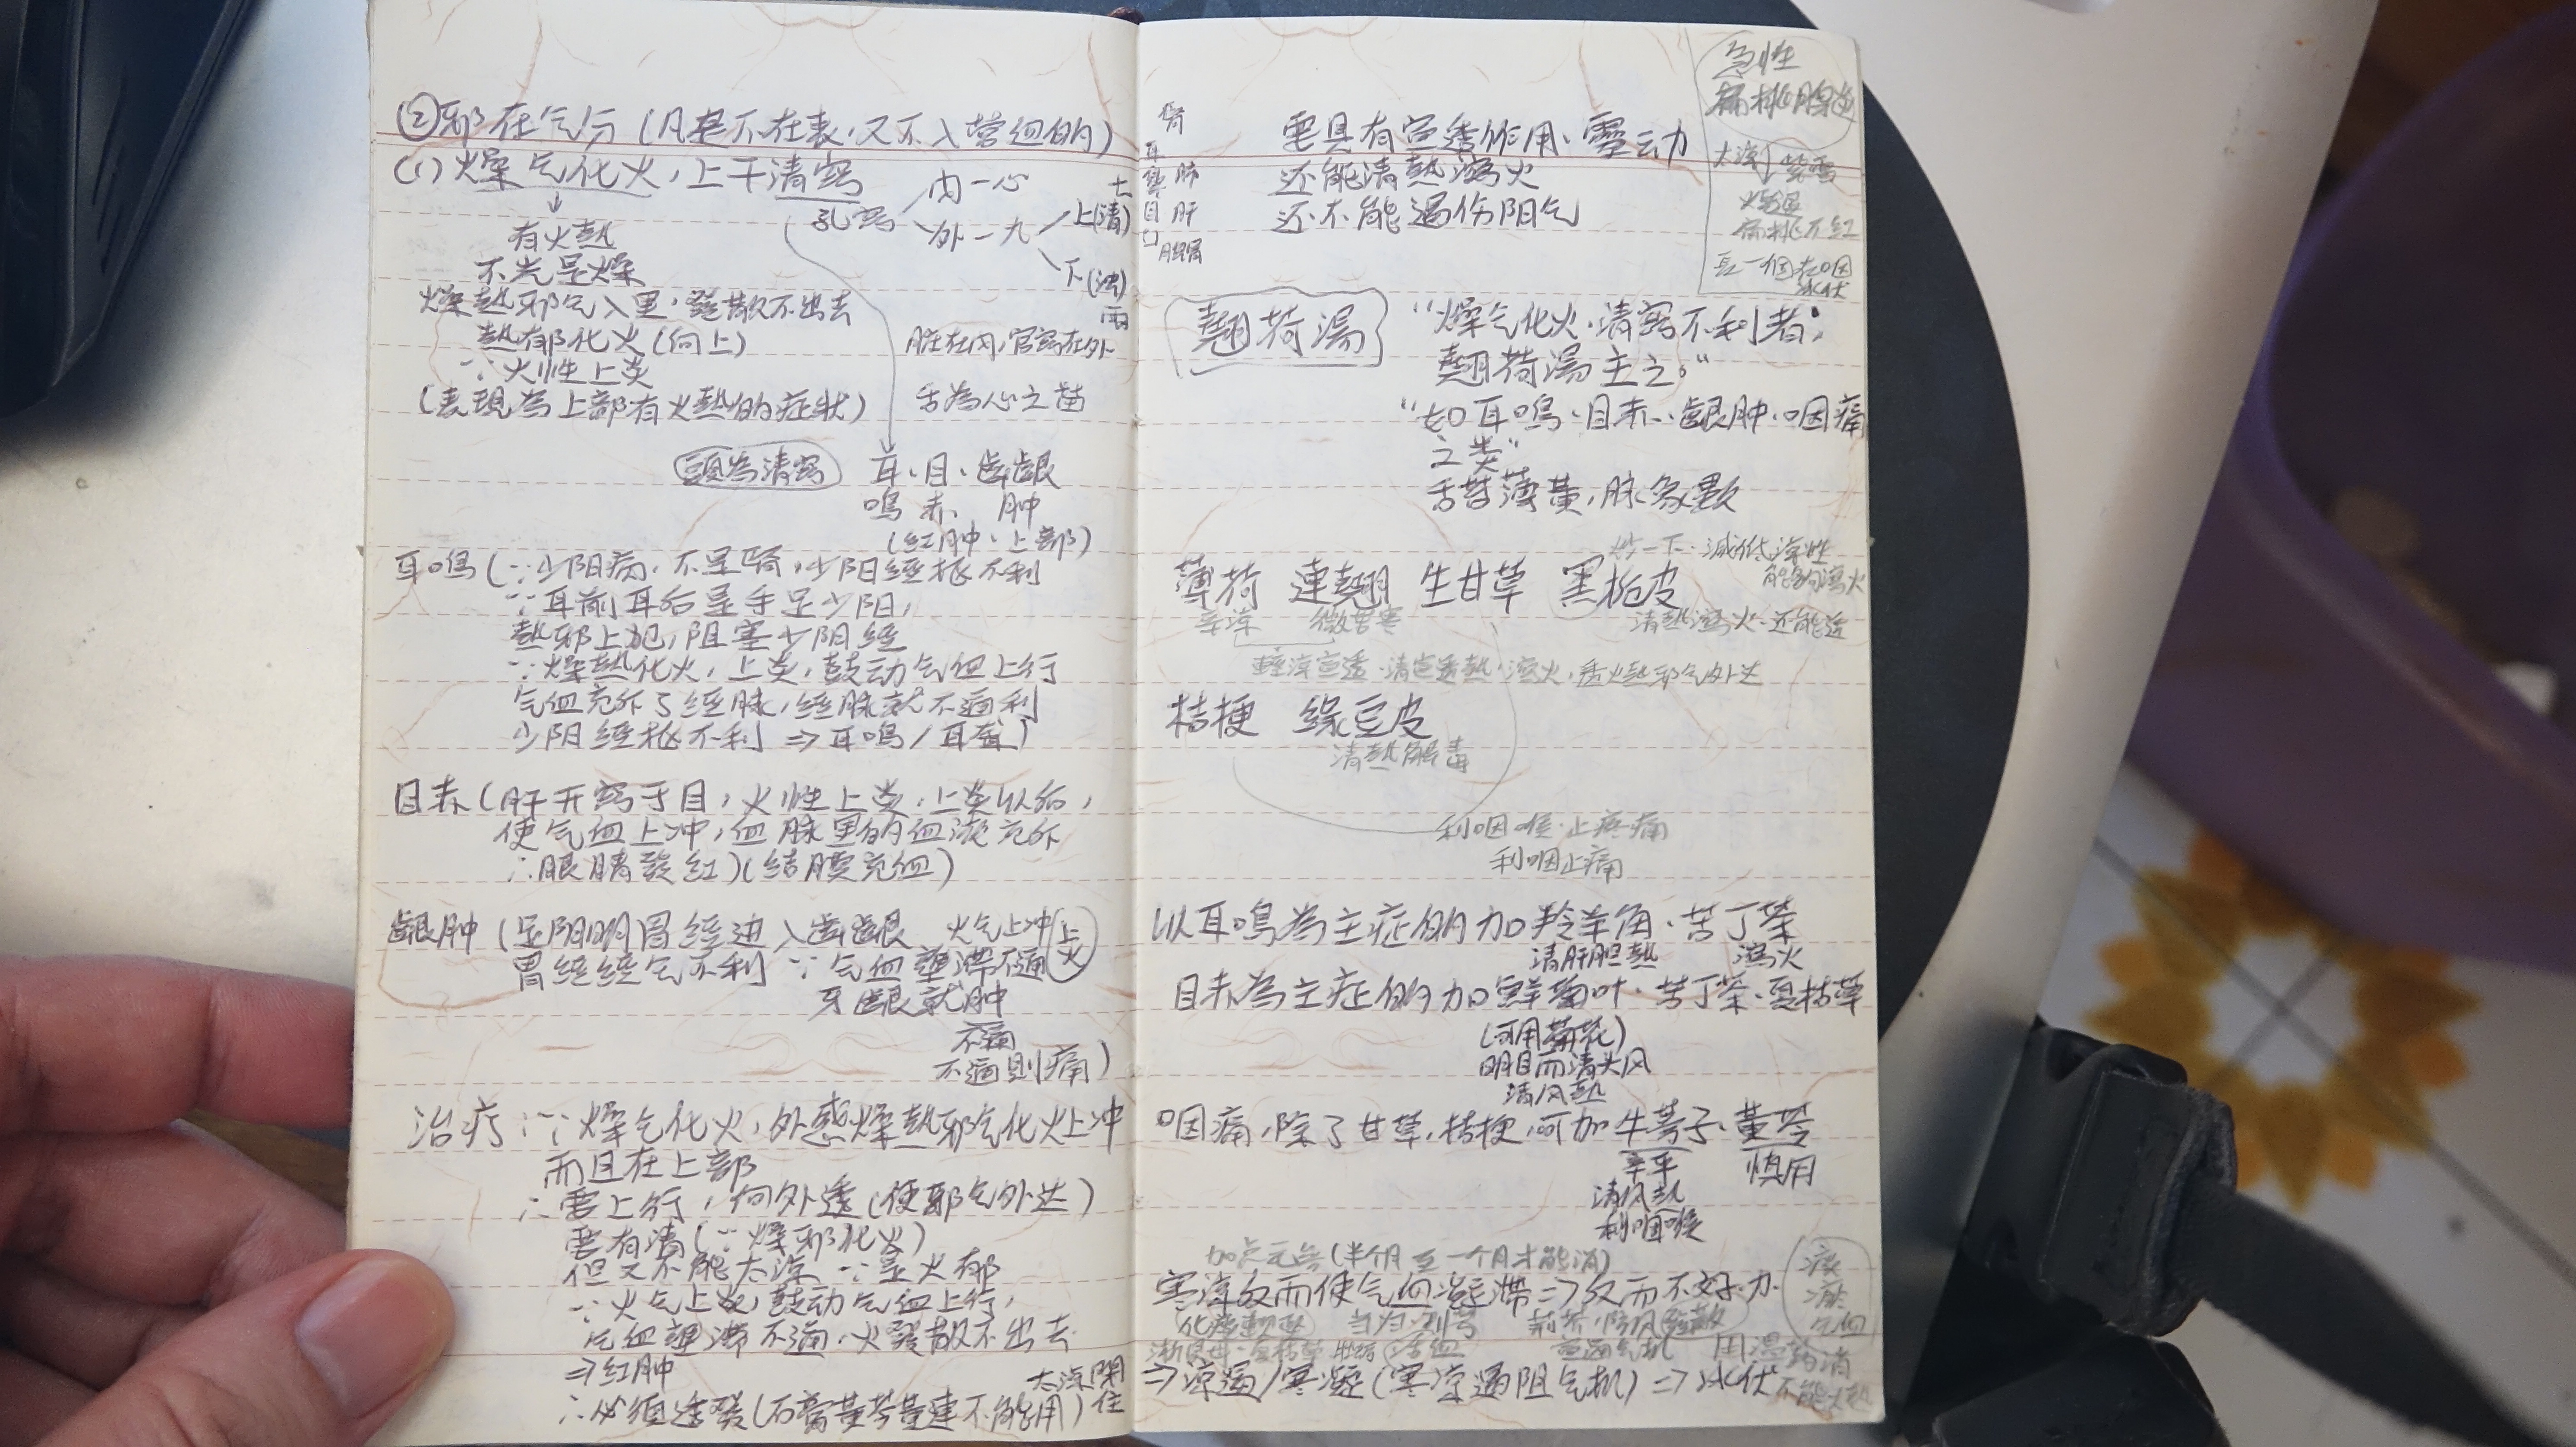 ②邪在气分（凡是不在表，又不入营血的）
(1)燥气化火，上干清窍
孔窍
内一心
外一九
上(清)
下(浊)
有火熱
不光是燥
燥熱邪气入里，發散不出去
熱郁化火(向上)
∵火性上炎
(表現為上部有火熱的症狀)
脏在内，官窍在外
舌為心之苗
頭為清窍
耳、目、齒齦
鳴 赤 肿
(红肿、上部)
耳鳴(∵少阳病，不是腎，少阳经枢不利
∵耳前耳后是手足少阳，
熱邪上犯，阻塞少阳经
∵燥熱化火，上炎，鼓动气血上行
气血充斥了经脉，经脉就不通利
少阳经枢不利 ⇒耳鳴/耳聋)
目赤(肝开窍于目，火性上炎，上炎以后，
使气血上冲，血脉里的血液充斥
∴眼睛發红)(结膜充血)
齦肿(足阳明胃经进入齒齦
胃经经气不利
火气上冲(上火)
∵气血壅滞不通
牙齦就肿
不通
不通則痛)
治疗：∵燥气化火，外感燥熱邪气化火上冲
而且在上部
∴要上行，向外透(使邪气外达)
要有清(∵燥邪化火)
但又不能太凉 ∵是火郁
∵火气上炎，鼓动气血上行，
气血壅滞不通，火發散不出去
⇒红肿
∴必須透發(石膏黄芩黄連不能用)
太凉閉住
腎
耳
鼻 肺
目 肝
口 脾胃
要具有宣透作用、靈动
还能清熱瀉火
还不能遏伤阳气
急性
扁桃腺炎
太凉
扁桃不红
冰伏
翹荷湯
“燥气化火，清窍不利者，
翹荷湯主之。”
“如耳鳴、目赤、齦肿、咽痛
之类”
舌苔薄黄，脉象數
炒一下，減低凉性
能夠瀉火
薄荷 連翹 生甘草 黑栀皮
辛凉 微苦寒
清熱瀉火，还能透
辛凉宣透，清宣透熱，瀉火，透火熱邪气外达
桔梗 綠豆皮
清熱解毒
利咽喉、止疼痛
利咽止痛
以耳鳴為主症的加羚羊角、苦丁茶
清肝胆熱 瀉火
目赤為主症的加鮮菊叶、苦丁茶、夏枯草
(可用菊花)
明目而清头风
清风熱
咽痛，除了甘草，桔梗，可加牛蒡子、黄芩
辛平 慎用
清风熱
利咽喉
加点元参(半个月至一个月才能消)
寒凉反而使气血凝滞⇒反而不好办
当归
荆芥、防风
浙貝母、夏枯草
活血
宣通气机
用温药消
⇒凉遏/寒凝(寒凉遏阻气机)⇒冰伏
痰
瘀
气血